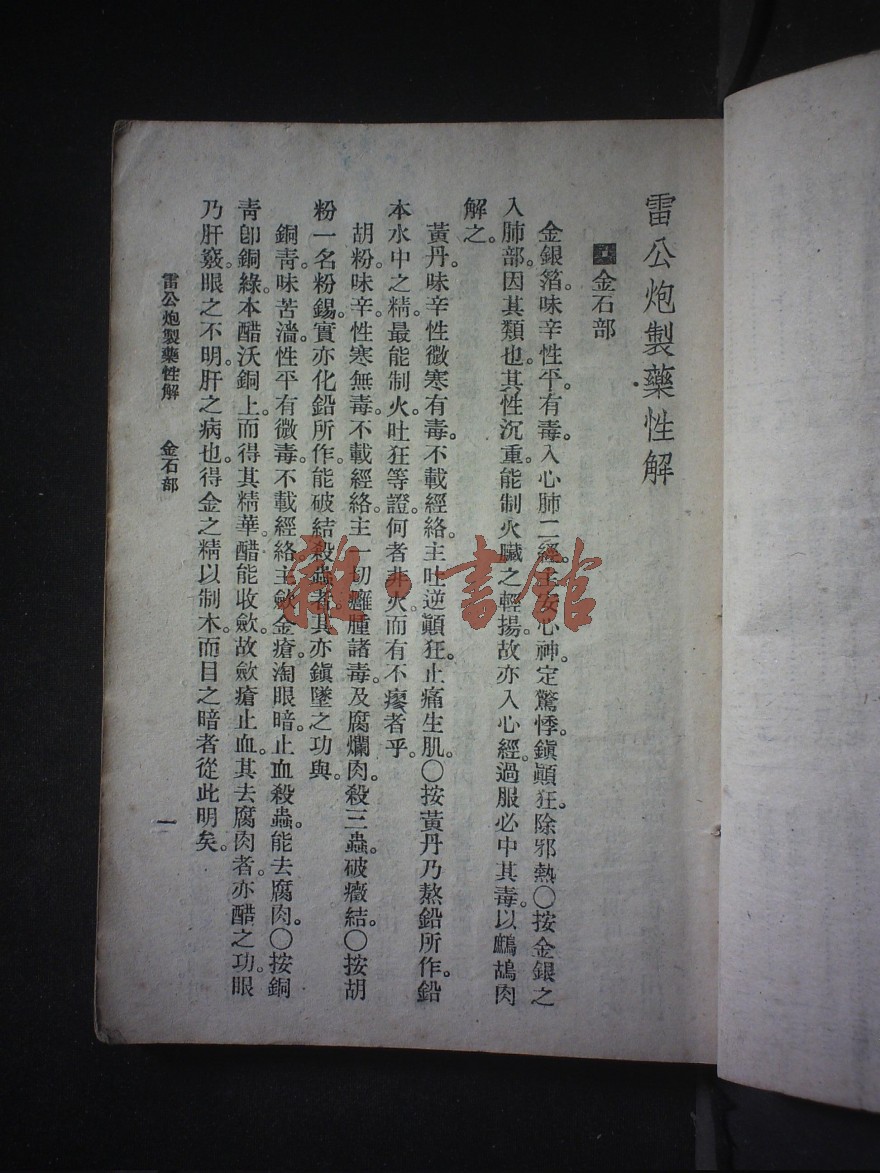 雷公炮製藥性解
金石部
金銀箔。味辛性平。有毒。入心肺二經。主安心神。定驚悸。鎮顚狂。除邪熱。○按金銀之
入肺部。因其類也。其性沉重。能制火臟之輕揚。故亦入心經。過服必中其毒。以鷓鴣肉
解之。
黃丹。味辛性微寒有毒。不載經絡。主吐逆顚狂。止痛生肌。○按黃丹乃熬鉛所作。鉛
本水中之精。最能制火。吐狂等證。何者非火。而有不瘳者乎。
胡粉。味辛性寒無毒。不載經絡。主一切癰腫諸毒。及腐爛肉。殺三蟲。破癥結。○按胡
粉一名粉錫。實亦化鉛所作。能破結殺蟲者。其亦鎭墜之功與。
銅靑。味苦濇。性平有微毒。不載經絡。主歛金瘡。淘眼暗。止血殺蟲。能去腐肉。○按銅
靑卽銅綠。本醋沃銅上。而得其精華。醋能收歛。故歛瘡止血。其去腐肉者。亦醋之功。眼
乃肝竅。眼之不明。肝之病也。得金之精以制木。而目之暗者從此明矣。
雷公炮製藥性解 金石部 一
雜·書館